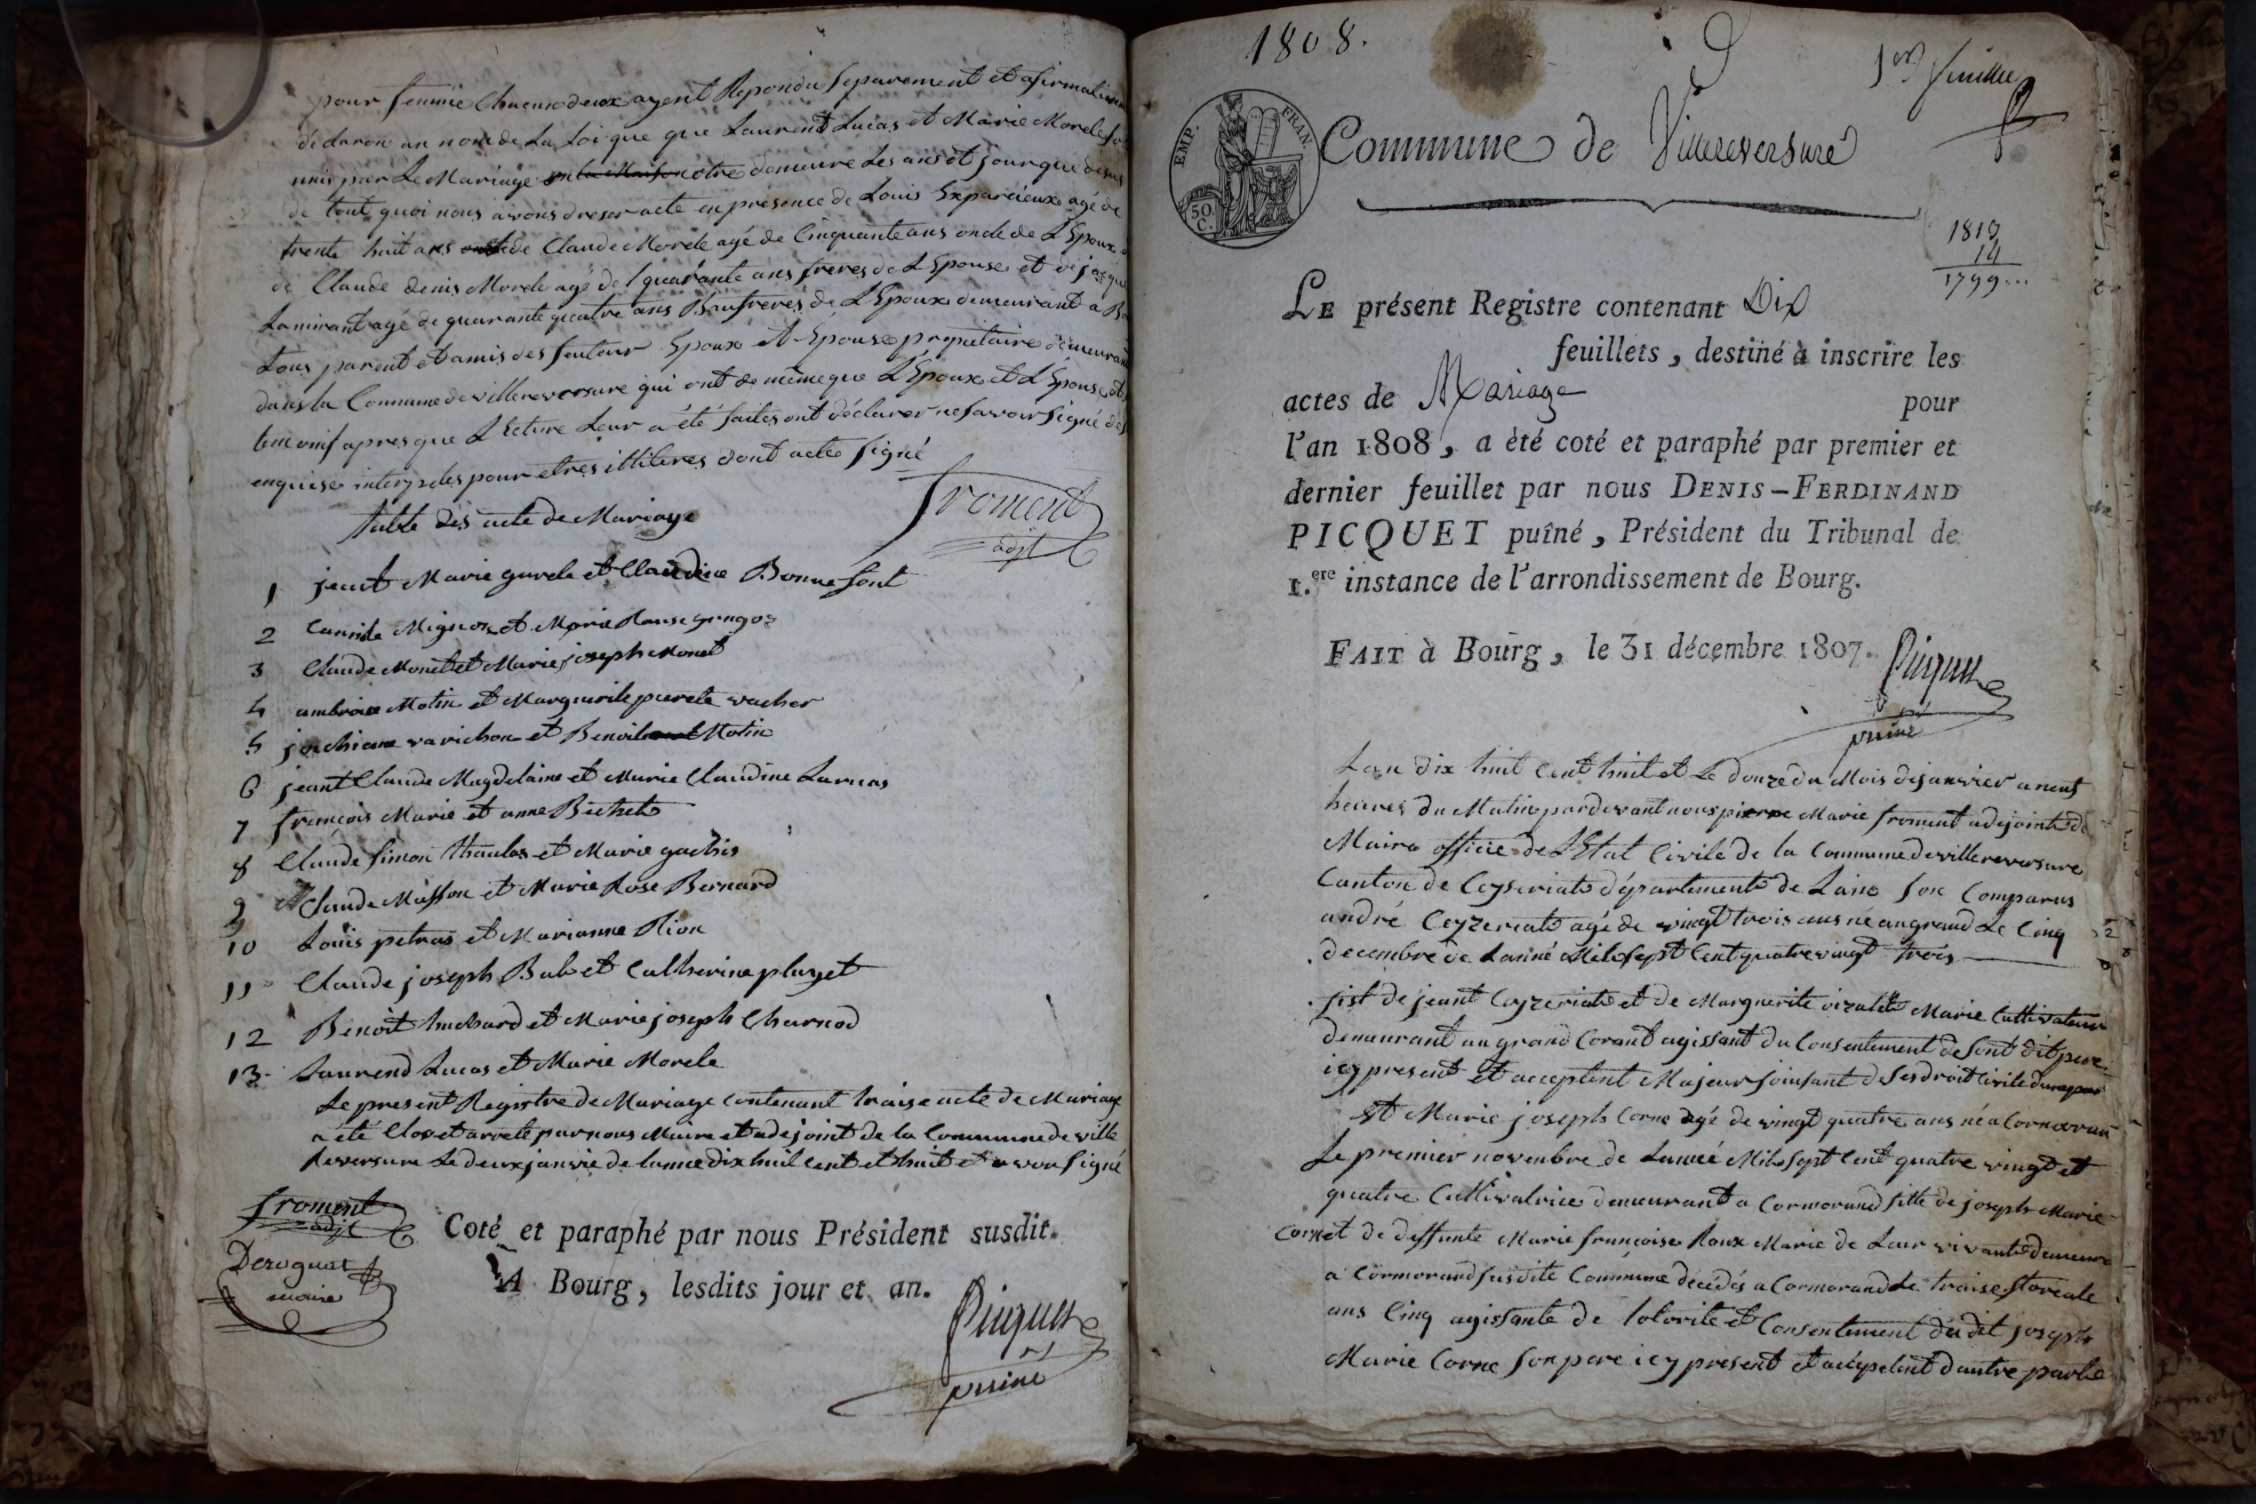 pour femme Chacun deux ayent Repondu separement et afirmative
declaron au nom de La Loi que que Laurent Lucas et Marie Morele so
unis par Le Mariage en la Maison otre demeure Les ans et jour que desus
de tout quoi nous avons dreser acte en présence de Louis Exparcieux agé de
trente huit ans oncle de Claude Morele agé de Cinquante ans oncle de L'Epoux
de Claude denis Morele agé de quarante ans freres de L'Epouse et de jacque
Lamirant agé de quarante quatre ans Baufreres de L'Epoux demeurant a
tous parent et amis des futeur Epoux et Epouse proprietaire demeurant
dans la Commune de villereversure qui ont de même que L'Epoux et L'Epouse et
temoins apres que Lecture Leur a été faites ont déclarer ne savoir signé de
enquise interpeles pour etres illiteres dont acte signé
froment
adjt
table des acte de Mariage
1 jeant Marie gurele et Claudine Bonnefont
2 Camile Mignon et Marie Rause gringoz
3 Claude Monet et Marie joseph Monet
4 ambroise Motin et Marguerite pierete vacher
5 joachiame varichon et Benoite Motin
6 jeant Claude Magdelaine et Marie Claudine Larueas
7 françois Marie et anne Bichet
8 Claude simon thaulas et Marie gachis
9 Claude Masson et Marie Rose Bernard
10 Louis petras et Marianne Rion
11 Claude joseph Bab et Catherine pluget
12 Benoit huchard et Marie joseph Charnod
13 Laurend Lucas et Marie Morele
Le present Registre de Mariage contenant traise acte de Mariage
a été Clos et arreté par nous Maire et adejoint de la Commune de ville
Reversure Le deux janvié de lanné dix huit cent et huit et avons signé
froment
adjt
Deroguat
maire
Coté et paraphé par nous Président susdit.
A Bourg, lesdits jour et an.
Picquet
puiné
1808.
1er feuillet
EMP. FRAN.
50 C.
Commune de Villereversure
1813
14
1799...
LE présent Registre contenant Dix
feuillets, destiné à inscrire les
actes de Mariage pour
l'an 1808, a été coté et paraphé par premier et
dernier feuillet par nous DENIS-FERDINAND
PICQUET puîné, Président du Tribunal de
1.ere instance de l'arrondissement de Bourg.
FAIT à Bourg, le 31 décembre 1807.
Picquet
puiné
Lan dix huit Cent huit et Le douze du Mois de janvier a neuf
heures du Matin pardevant nous pierre Marie froment adejoint de
Maire officie de L'Etat Civile de la Commune de villereversure
Canton de Ceyseriat département de Lain son Comparus
andré Ceyzeriat agé de vingt trois ans né au grand Le Cinq
decembre de Lanné Mil sept Cent quatre vingt trois
fist de jeant Ceyzeriat et de Marguerite Marie Cultivateur
demeurant au grand Corant agissant du Consentement de sont dit pere
icy present et acceptent Majeur jouisant de ses droit Civile dune part
et Marie joseph Corne agé de vingt quatre ans né a Cormoran
Le premier novembre de Lanneé Mil sept Cent quatre vingt et
quatre Cultivatrice demeurant a Cormorand fille de joseph Marie
Cornet de deffunte Marie françoise Roux Marie de Leur vivante demeure
a Cormorand susdite Commune decédés a Cormorand Le traise floreale
ans Cinq agissante de lotorite et Consentement du dit joseph
Marie Corne son pere icy present et acceptent dautre partie